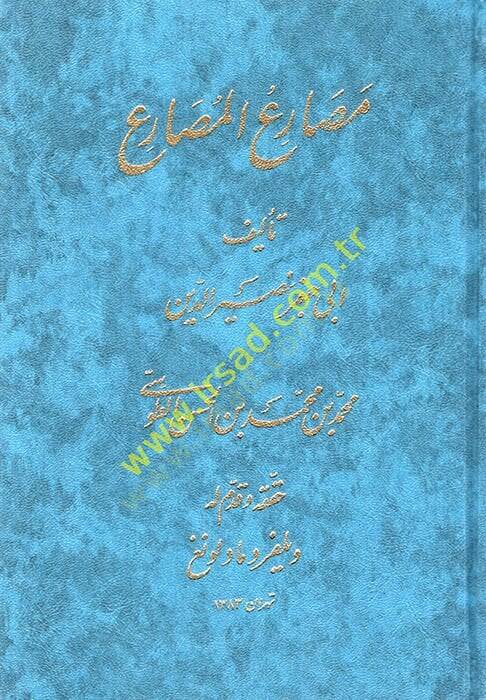 مَصَارِعُ المُصَارِع
تأليف
ابی جعفر نصیر الدّین
محمّد بن محمّد بن الحسن الطّوسّی
حقّقه وقدّم له
ویلفرد مادلونغ
تهران ۱۳۸۳
www.irsad.com.tr